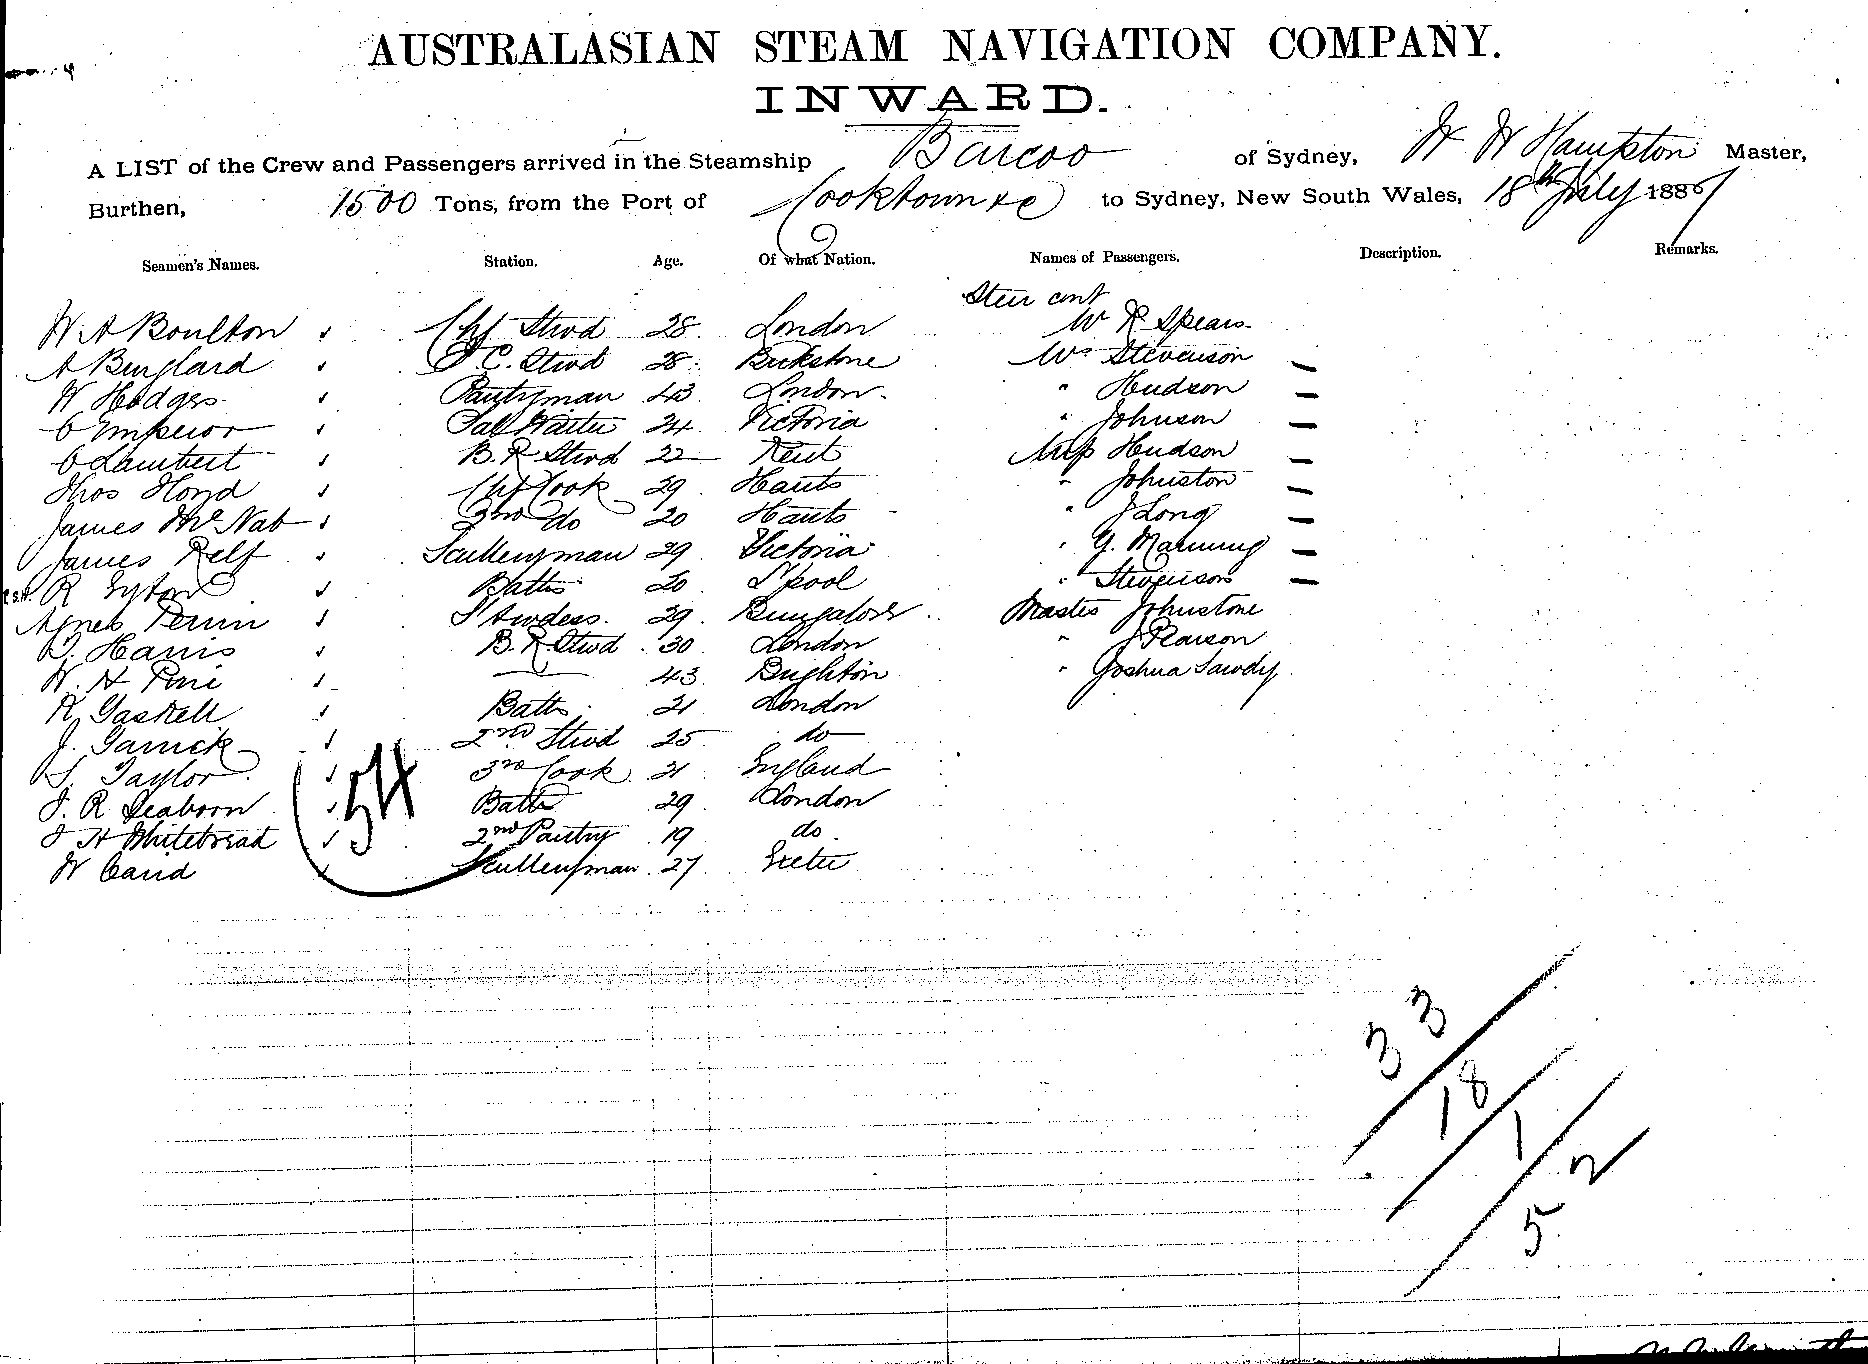 AUSTRALASIAN STEAM NAVIGATION COMPANY.
INWARD.
A LIST of the Crew and Passengers arrived in the Steamship Barcoo of Sydney, W W Hampton Master,
Burthen, 1500 Tons, from the Port of Cooktown &c to Sydney, New South Wales, 18th July 1886
Seamen's Names. Station. Age. Of what Nation. Names of Passengers. Description. Remarks.
Steer cont
W. A Boulton Chf Stwd 28 London W R Spears
A F.C. Stwd 28 Mrs Stevenson
W Hodges Pantryman 43 London. " Hudson
C Emperor Sal Waiter 24 Victoria " Johnson
C Lambert B. R Stwd 22 Kent Miss Hudson
Thos Chf Cook 29 Hants " Johnston
James McNab 2nd do 20 Hants " J Long
James Relf Sculleryman 29 Victoria " G. Manning
R Syton 20 L'pool " Stevenson
Agnes Perrin Stwdess. 29 Master Johnstone
D. Harris B. R. Stwd 30 London " J Pearson
W. H 43 Brighton " Joshua
R Gaskell 21 London
J. Garrick 2nd Stwd 25 do
S. Taylor 3rd Cook 21 England
J. R. Seaborn 29 London
J H Whitebread 2nd Pantry 19 do
W Caird Sculleryman 27 Exeter
54
33
18
1
52